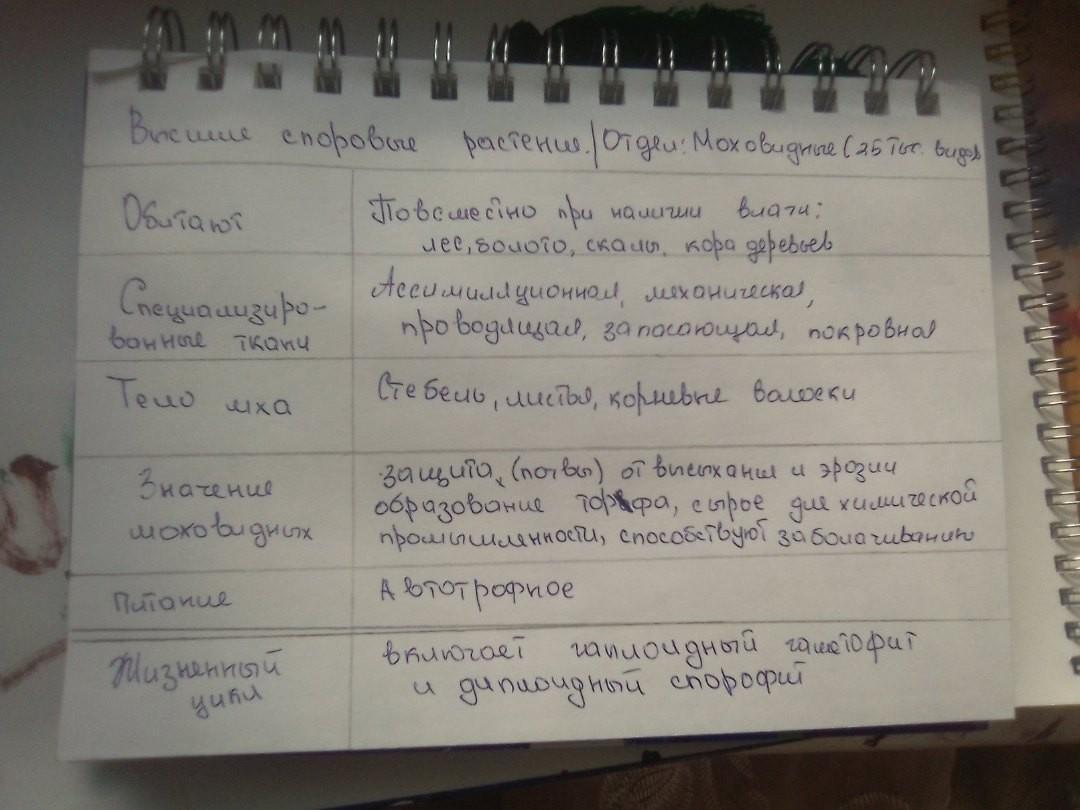 Высшие споровые растение. / Отдел: Моховидные (25 тыс. видов
Обитают
Повсместно при наличии влаги:
лес, болото, скалы, кора деревьев
Специализиро-
ванные ткани
Ассимилляционная, механическая,
проводящая, запасающая, покровная
Тело мха
Стебель, листья, корневые волоски
Значение
моховидных
защита (почвы) от высыхания и эрозии
образование торфа, сырое для химической
промышленности, способствуют заболачиванию
Питание
Автотрофное
Жизненный
цикл
включает гаплоидный гаметофит
и диплоидный спорофит